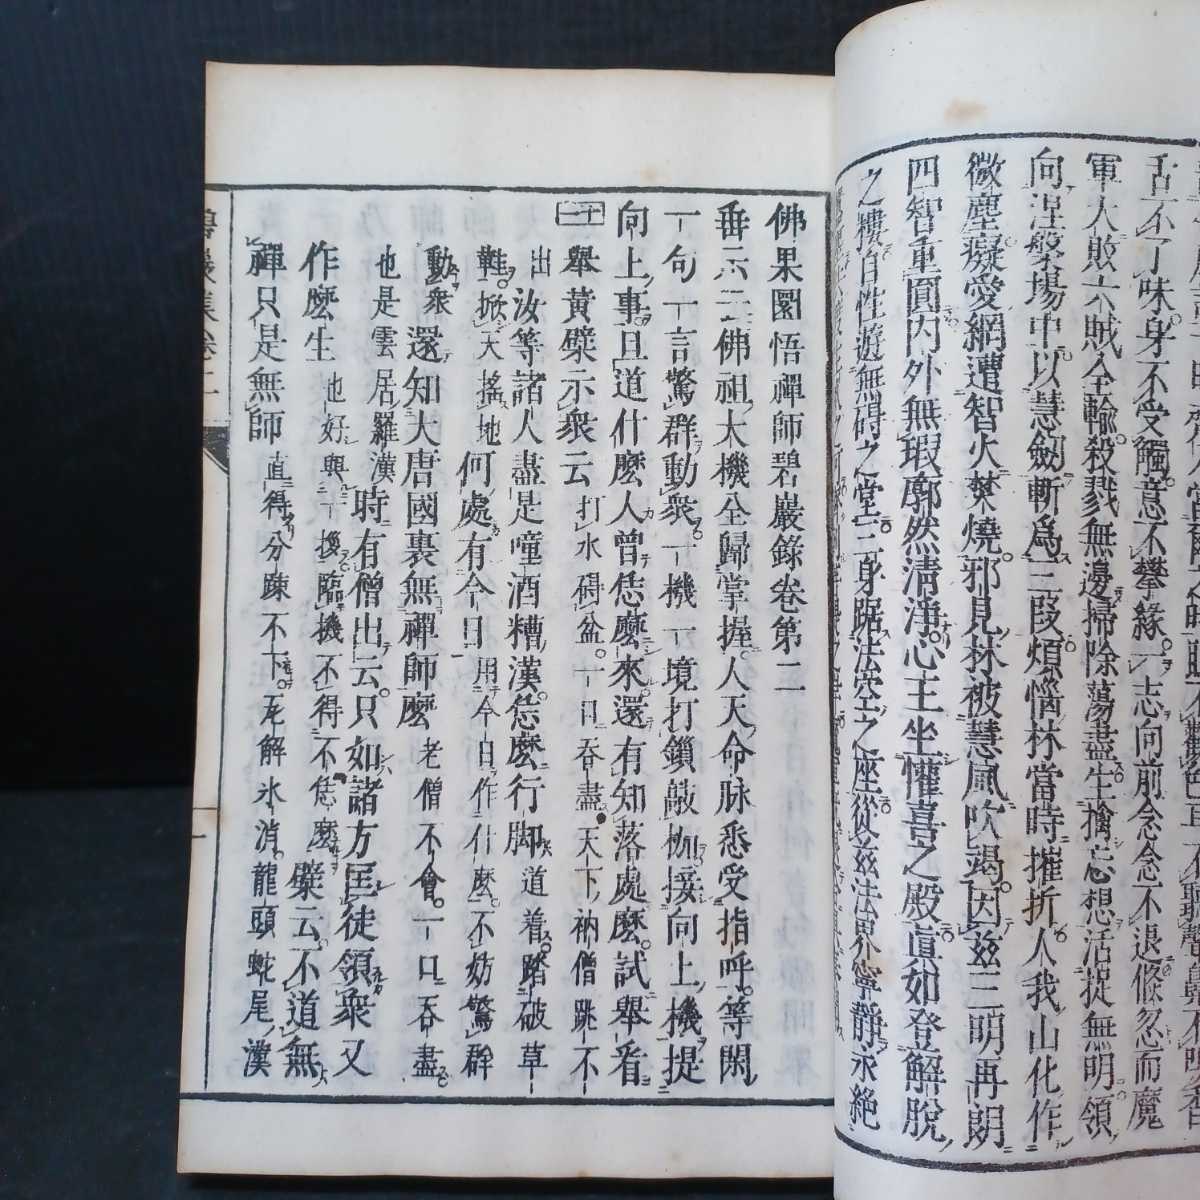 舌不了味身不受觸意不攀緣一志向前念念不退倏忽而魔
軍大敗六賊全輸殺戮無邊掃除蕩盡生擒忘想活捉無明領
向涅槃場中以慧劒斬爲三段煩惱林當時摧折人我山化作
微塵癡愛網遭智火焚燒邪見林被慧風吹竭因玆三明再朗
四智重圓内外無瑕廓然清淨心王坐懽喜之殿眞如登解脫
之樓自性遊無碍之堂三身踞法空之座從玆法界寧靜永絶
佛果圜悟禪師碧巖錄卷第二
垂示云佛祖大機全歸掌握人天命脉悉受指呼等閑
一句一言驚群動衆一機一境打鎖敲枷接向上機提
向上事且道什麼人曾恁麼來還有知落處麼試舉看
十一 舉黄檗示衆云 打水碍盆一口吞盡天下衲僧跳不
出 汝等諸人盡是噇酒糟漢恁麼行脚 道着踏破草
鞋掀天搖地 何處有今日 用今日作什麼不妨驚群
動衆 還知大唐國裏無禪師麼 老僧不會一口吞盡
也是雲居羅漢 時有僧出云只如諸方匡徒領衆又
作麼生 也好與一拶臨機不得不恁麼 檗云不道無
禪只是無師 直得分踈不下瓦解氷消龍頭蛇尾漢